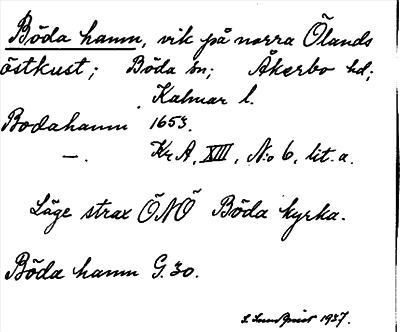 Böda hamn, vik på norra Ölands
östkust; Böda sn; Åkerbo hd;
Kalmar l.
Bodahamn 1653.
—. Kr A, XIII, No 6, lit. a.
Läge strax ÖNÖ Böda kyrka.
Böda hamn G. 30.
1937.